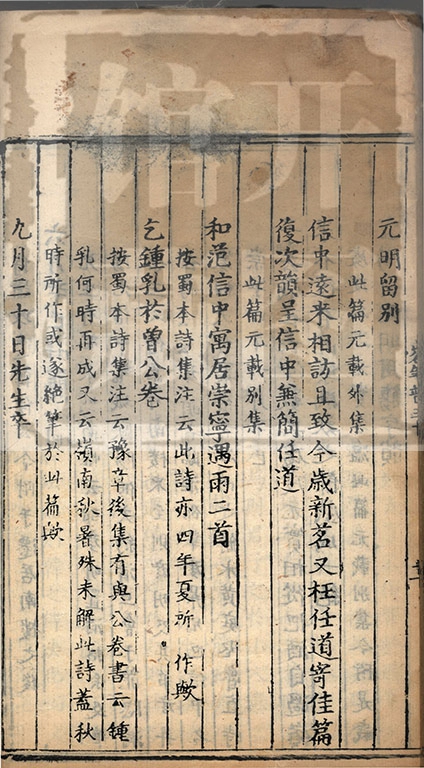 元明留別
此篇元載外集
信中遠来相訪且致今歳新茗又枉任道寄佳篇
復次韻呈信中兼簡任道
此篇元載別集
和范信中寓居崇寧遇雨二首
按蜀本詩集注云此詩亦四年夏所作歟
乞鍾乳於曽公卷
按蜀本詩集注云豫章後集有與公卷書云鍾
乳何時再成又云嶺南秋暑殊未解此詩蓋秋
時所作或遂絶筆於此篇歟
九月三十日先生卒